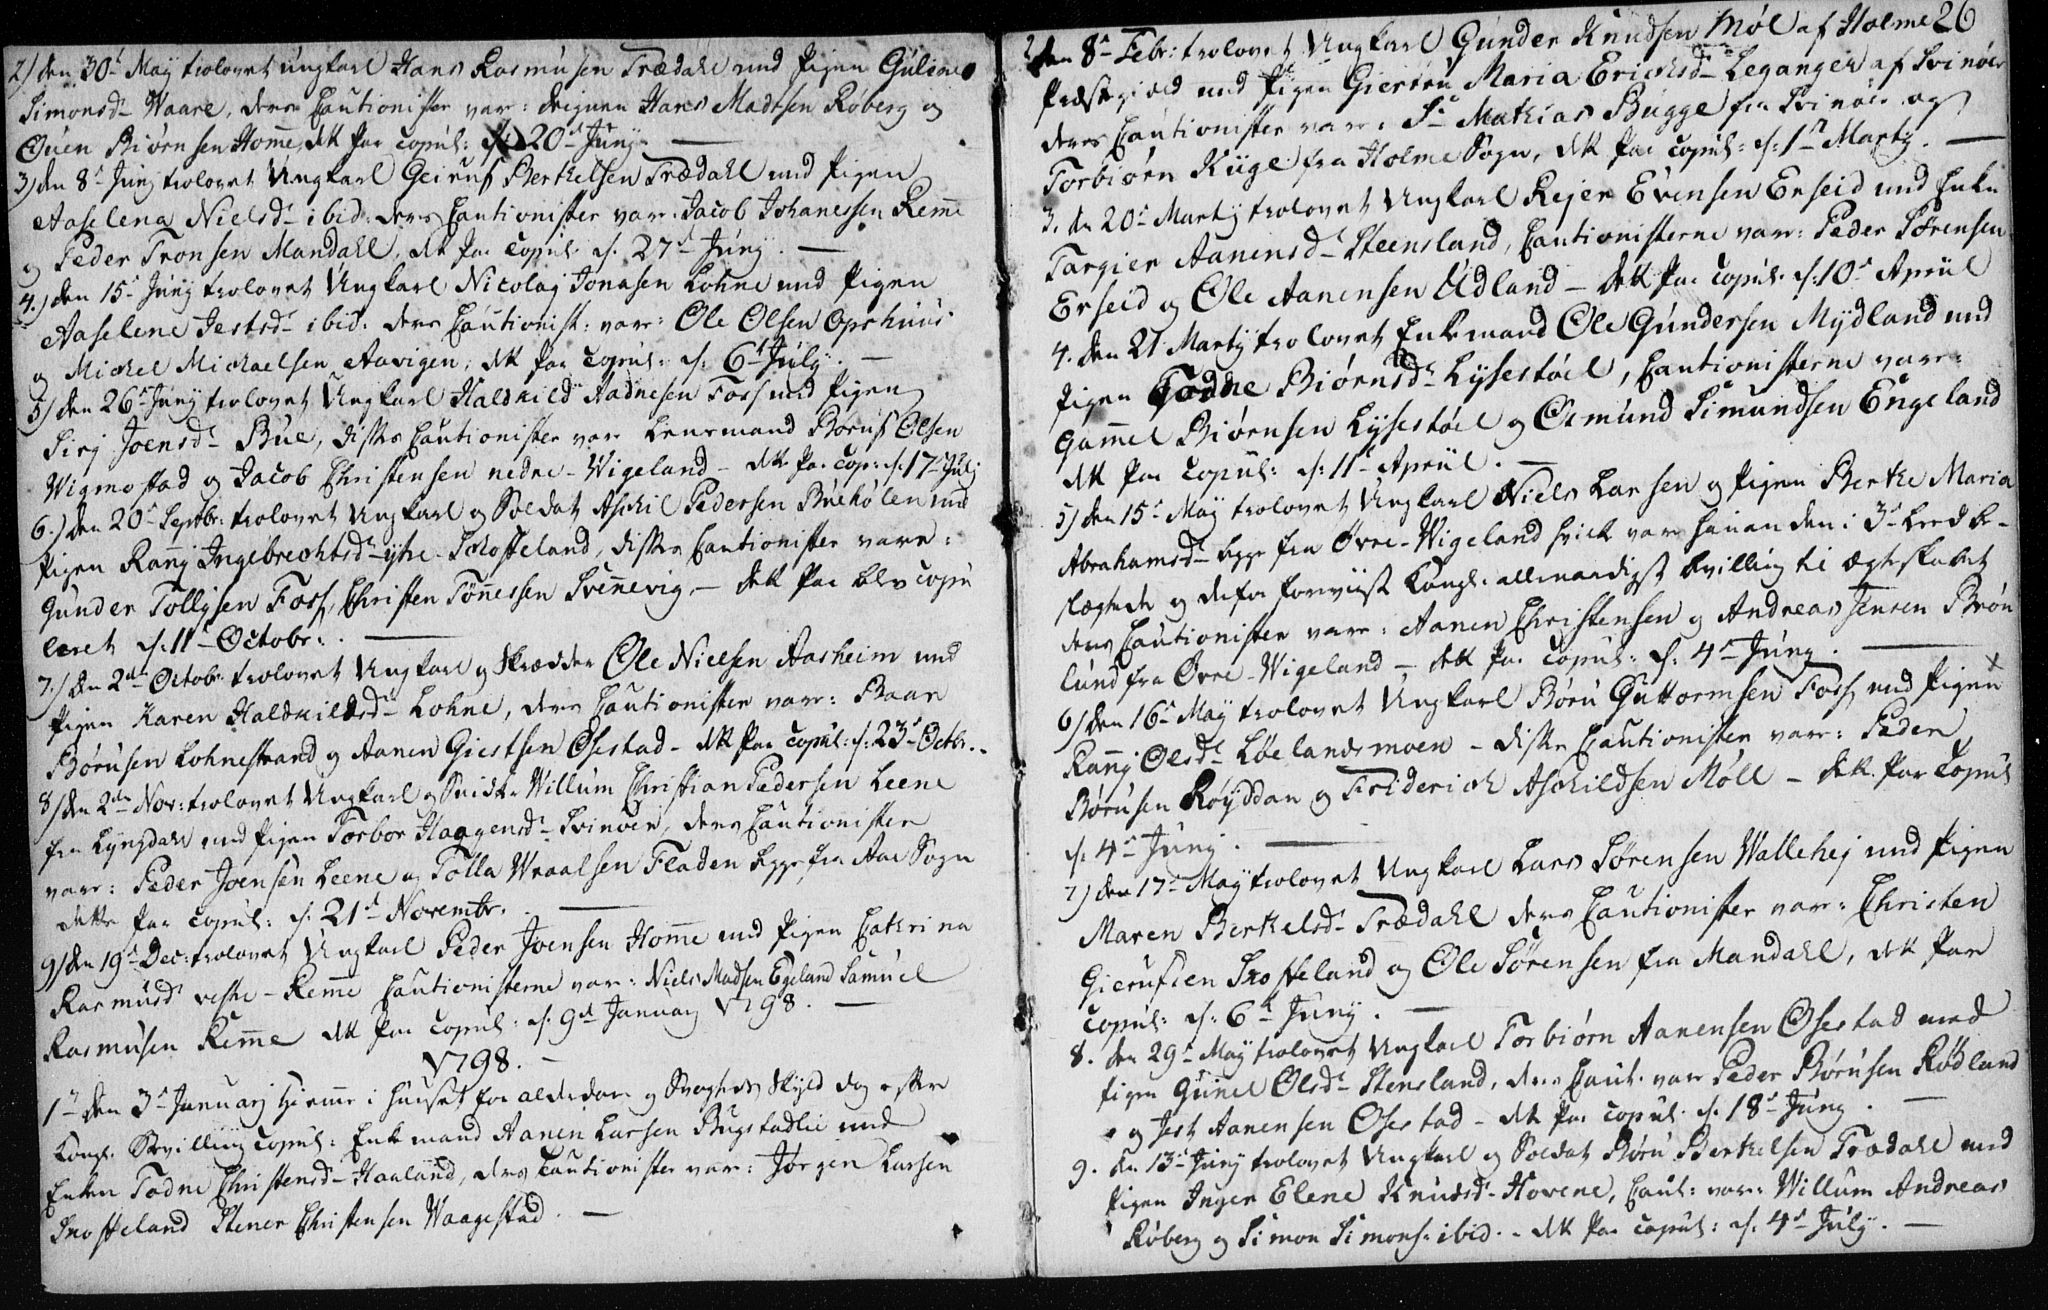 2) den 30t May trolovet ungkarl Hans Rasmusen Trædahl med Pigen Guline
Simonsd- Waare, deres Cautionister var: Hans Madtsen Røberg og
Øuen Biørnsen Home, dette Par copul: d: 20d Juny
3) den 8d Juny trolovet Ungkarl Geiruf Berthelsen Trædahl med Pigen
Aaselena Nielsd- ibid: deres Cautionister var: Jacob Johanessen Reme
og Peder Tronsen Mandahl, dette Par copul d. 27d Juny.
4.) den 15d Juny trolovet Ungkarl Nicolay Jonasen Lohne med Pigen
Aaselene Jestsd- ibid: deres Cautionist: var: Ole Olsen Opshuus
og Michel Michaelsen Aavigen, dette Par copul: d: 6d July.
5) den 26d Juny trolovet Ungkarl Haldkild Aadnesen Foss med Pigen
Sirj Joensd- Bue, disses Cautionister var Lensmand Boruf Olsen
Wigmostad og Jacob Christensen nedre-Wigeland - dette Par cop: d. 17d July
6.) den 20d Septbr: trolovet Ungkarl og Soldat Askil Pedersen Buehølen med
Pigen Ranj Ingebrechtsd- ytre Skoffeland, disses Cautionister vare:
Gunder Tollysen Foss, Christen Tønessen Svennevig, - dette Par blev copu
leret d. 11d Octobr:.
7.) den 2den Octobr: trolovet Ungkarl og Skrædder Ole Nielsen Aasheim med
Pigen Karen Haldkildsd- Lohne, deres Cautionister vare: Baar
Børusen Lohnestrand og Aanen Giestsen Øsestad - dette Par copul: d: 23d Octbr.
8) den 2den Nov: trolovet Ungkarl og Willum Christian Pedersen Leene
fra Lyngdahl med Pigen Torbor Haagensd- Svinøer, deres Cautionister
vare: Peder Joensen Leene og Tolla Wraalsen Fladen begge fra Aae Sogn
dette Par copul: d: 21d Novembr.
9) den 19d Dec: trolovet Ungkarl Peder Joensen Home med Pigen Cathrina
Rasmusd vestre-Reme Cautionisterne var: Niels Madsen Egeland Samuel
Rasmusen Reme dette Par copul: d. 9d January 1798.
1798.
1d den 3d January hieme i Huuset for alderdom og Svagheds Skyld dog efter
Kongl: Bevilling copul: Enkemand Aanen Larsen Bugstadlie med
Enken Todne Christensd- Haaland, deres Cautionister var: Jørgen Larsen
Skoffeland Stener Christensen Waagestad.
26
2 den 8d Febr: trolovet Ungkarl Gunder Knudsen Møl af Holme
Præstegield med Pigen Giertru Maria Erichsd- Leganger af Svinøer
deres Cautionister vare: Sr Mathias Bugge fra Svinøer og
Torbiørn Kuge fra Holme Sogn, dette Par copul: d: 1d Marty.
3. den 20d Marty trolovet Ungkarl Rejer Evensen Erseid med Enken
Targier Aanensd- Steensland, Cautionisterne var: Peder Sørensen
Erseid og Ole Aanensen Udland - dette Par copul. d: 10d April
4. den 21 Marty trolovet Enkemand Ole Gundersen Mydland med
Pigen Todne Biørnsd- Lysestøel, Cautionisterne vare:
Gamel Biørnsen Lysestøel og Osmund Simundsen Engeland
dette Par copul: d: 11d April.
5) den 15d May trolovet Ungkarl Niels Larsen og Pigen Berthe Maria
Abrahamsd- begge fra Øvre-Wigeland hvilke vare hinanden i 3d Leed be-
slægtede og derfor forviist Kongl: allernaadigst bevilling til Ægteskabet
deres Cautionister vare: Aanen Christensen og Andreas Jensen Brøn
lund fra Øvre-Wigeland - dette Par copul: d. 4d Juny.
6) den 16d May trolovet Ungkarl Børu Guttormsen Foss med Pigen
Ranj Olsd- Løelandsmoen - disses Cautionister vare: Peder
Børusen Røyddan og Friderich Askildsen Møll - dette Par copul
d. 4d Juny.
7) den 17d May trolovet Ungkarl Lars Sørensen Wallehej med Pigen
Maren Berthelsd- Trædahl deres Cautionister var: Christen
Gierufsen Skoffeland og Ole Sørensen fra Mandahl, dette Par
copul: d: 6d Juny.
8. den 29d May trolovet Ungkarl Torbiørn Aanensen Øsestad med
Pigen Guniel Olsd- Stensland, deres Caut. var Peder Børusen Rødland
og Jest Aanensen Øsestad - dette Par copul. d. 18d Juny.
9. den 13d Juny trolovet Ungkarl og Soldat Børu Berthelsen Trædahl med
Pigen Inger Elene Knudsd- Hovene, Caut: var: Willum Andreas
Røberg og Simon Simons. ibid. - dette Par copul: d. 4d July.